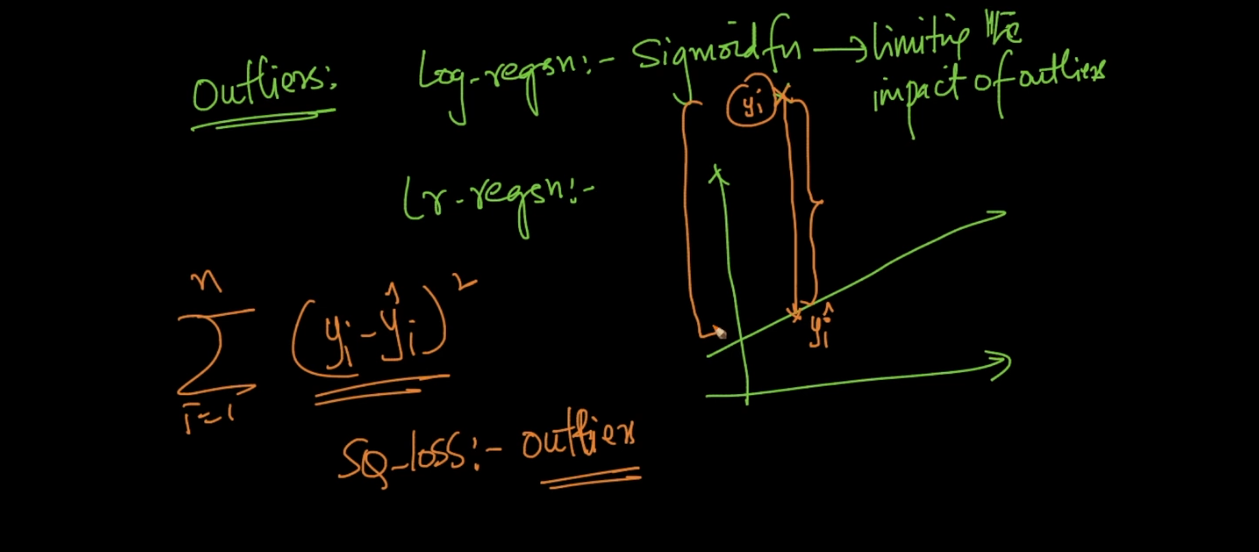 Outliers: Log-regsn:- Sigmoid fn → limiting the impact of outliers
yi
Lr-regsn:-
n
∑ (yi-ŷi)²
i=1
ŷi
SQ-loss:- outlier